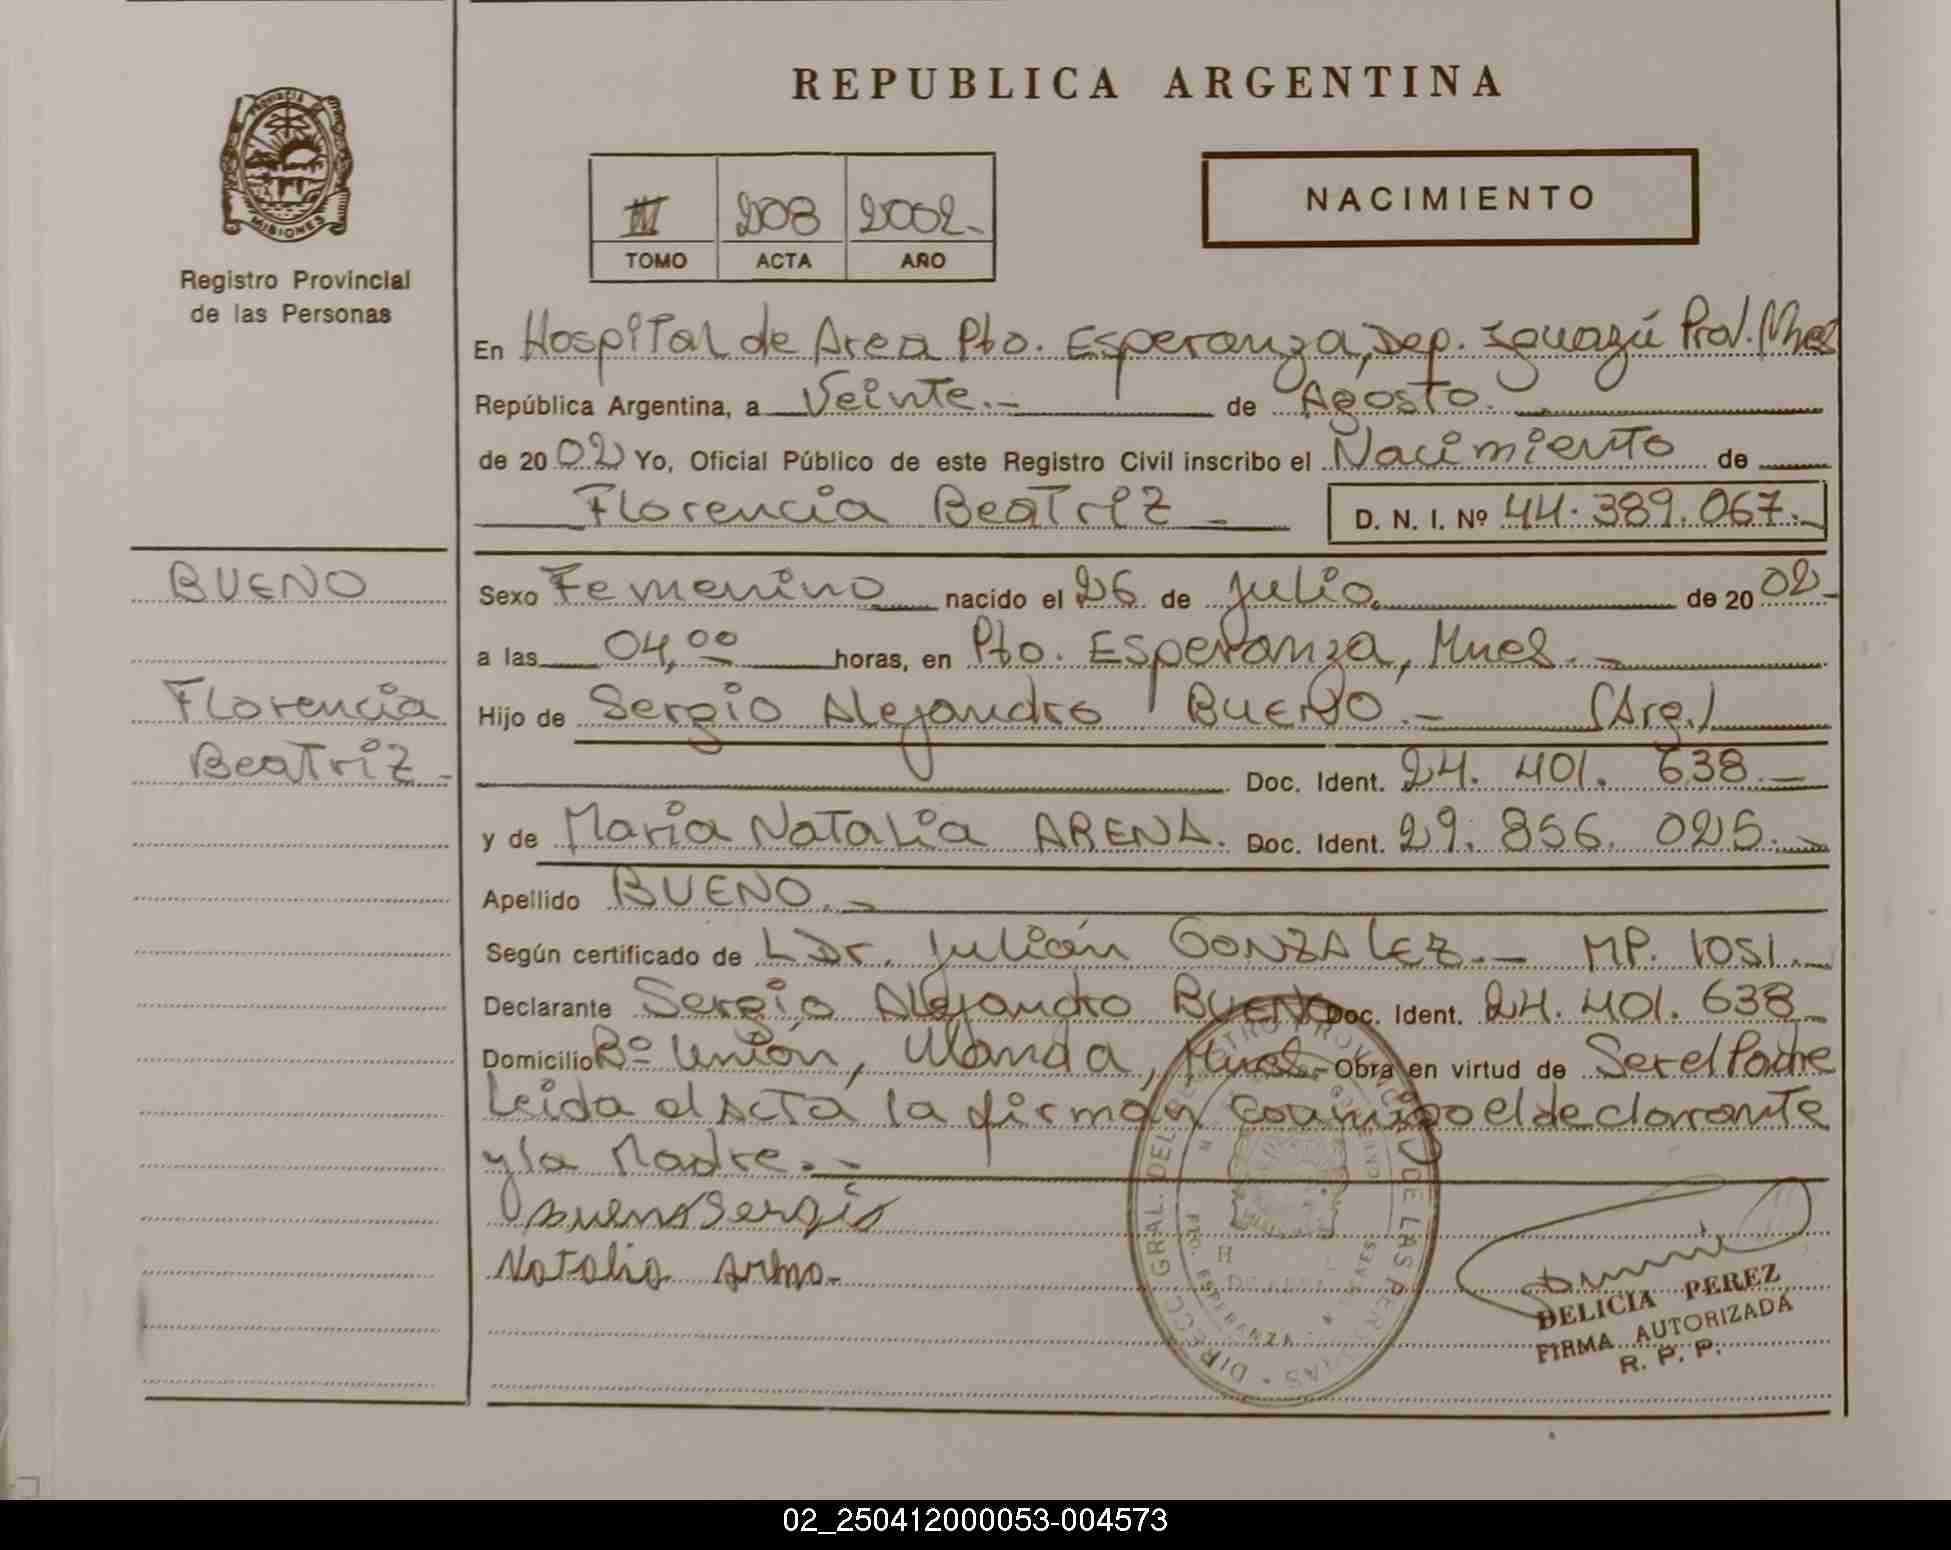 REPUBLICA ARGENTINA
PROVINCIA
MISIONES
Registro Provincial
de las Personas
III 208 2002.-
TOMO ACTA AÑO
NACIMIENTO
En Hospital de Area Pto. Esperanza, Dep. Iguazú Prov. Mnes
República Argentina, a Veinte.- de Agosto.
de 2002 Yo, Oficial Público de este Registro Civil inscribo el Nacimiento de
Florencia Beatriz - D. N. I. Nº 44.389.067.-
BUENO
Florencia
Beatriz -
Sexo Femenino nacido el 26 de Julio. de 2002-
a las 04,00 horas, en Pto. Esperanza, Mnes.-
Hijo de Sergio Alejandro BUENO.- (Arg.)
Doc. Ident. 24.401.638.-
y de Maria Natalia ARENA. Doc. Ident. 29.856.025.-
Apellido BUENO.-
Según certificado de Dr. Julián GONZALEZ.- MP. 1051.-
Declarante Sergio Alejandro BUENO Doc. Ident. 24.401.638-
Domicilio Bº Unión, Wanda, Mnes.- Obra en virtud de Ser el Padre
Leida el Acta la firman conmigo el declarante
y la Madre.-
Bueno Sergio
Natalia
DIRECC. GRAL. DEL REGISTRO PROVINCIAL DE LAS PERSONAS
PTO. ESPERANZA
DELICIA PEREZ
FIRMA AUTORIZADA
R. P. P.
02_250412000053-004573